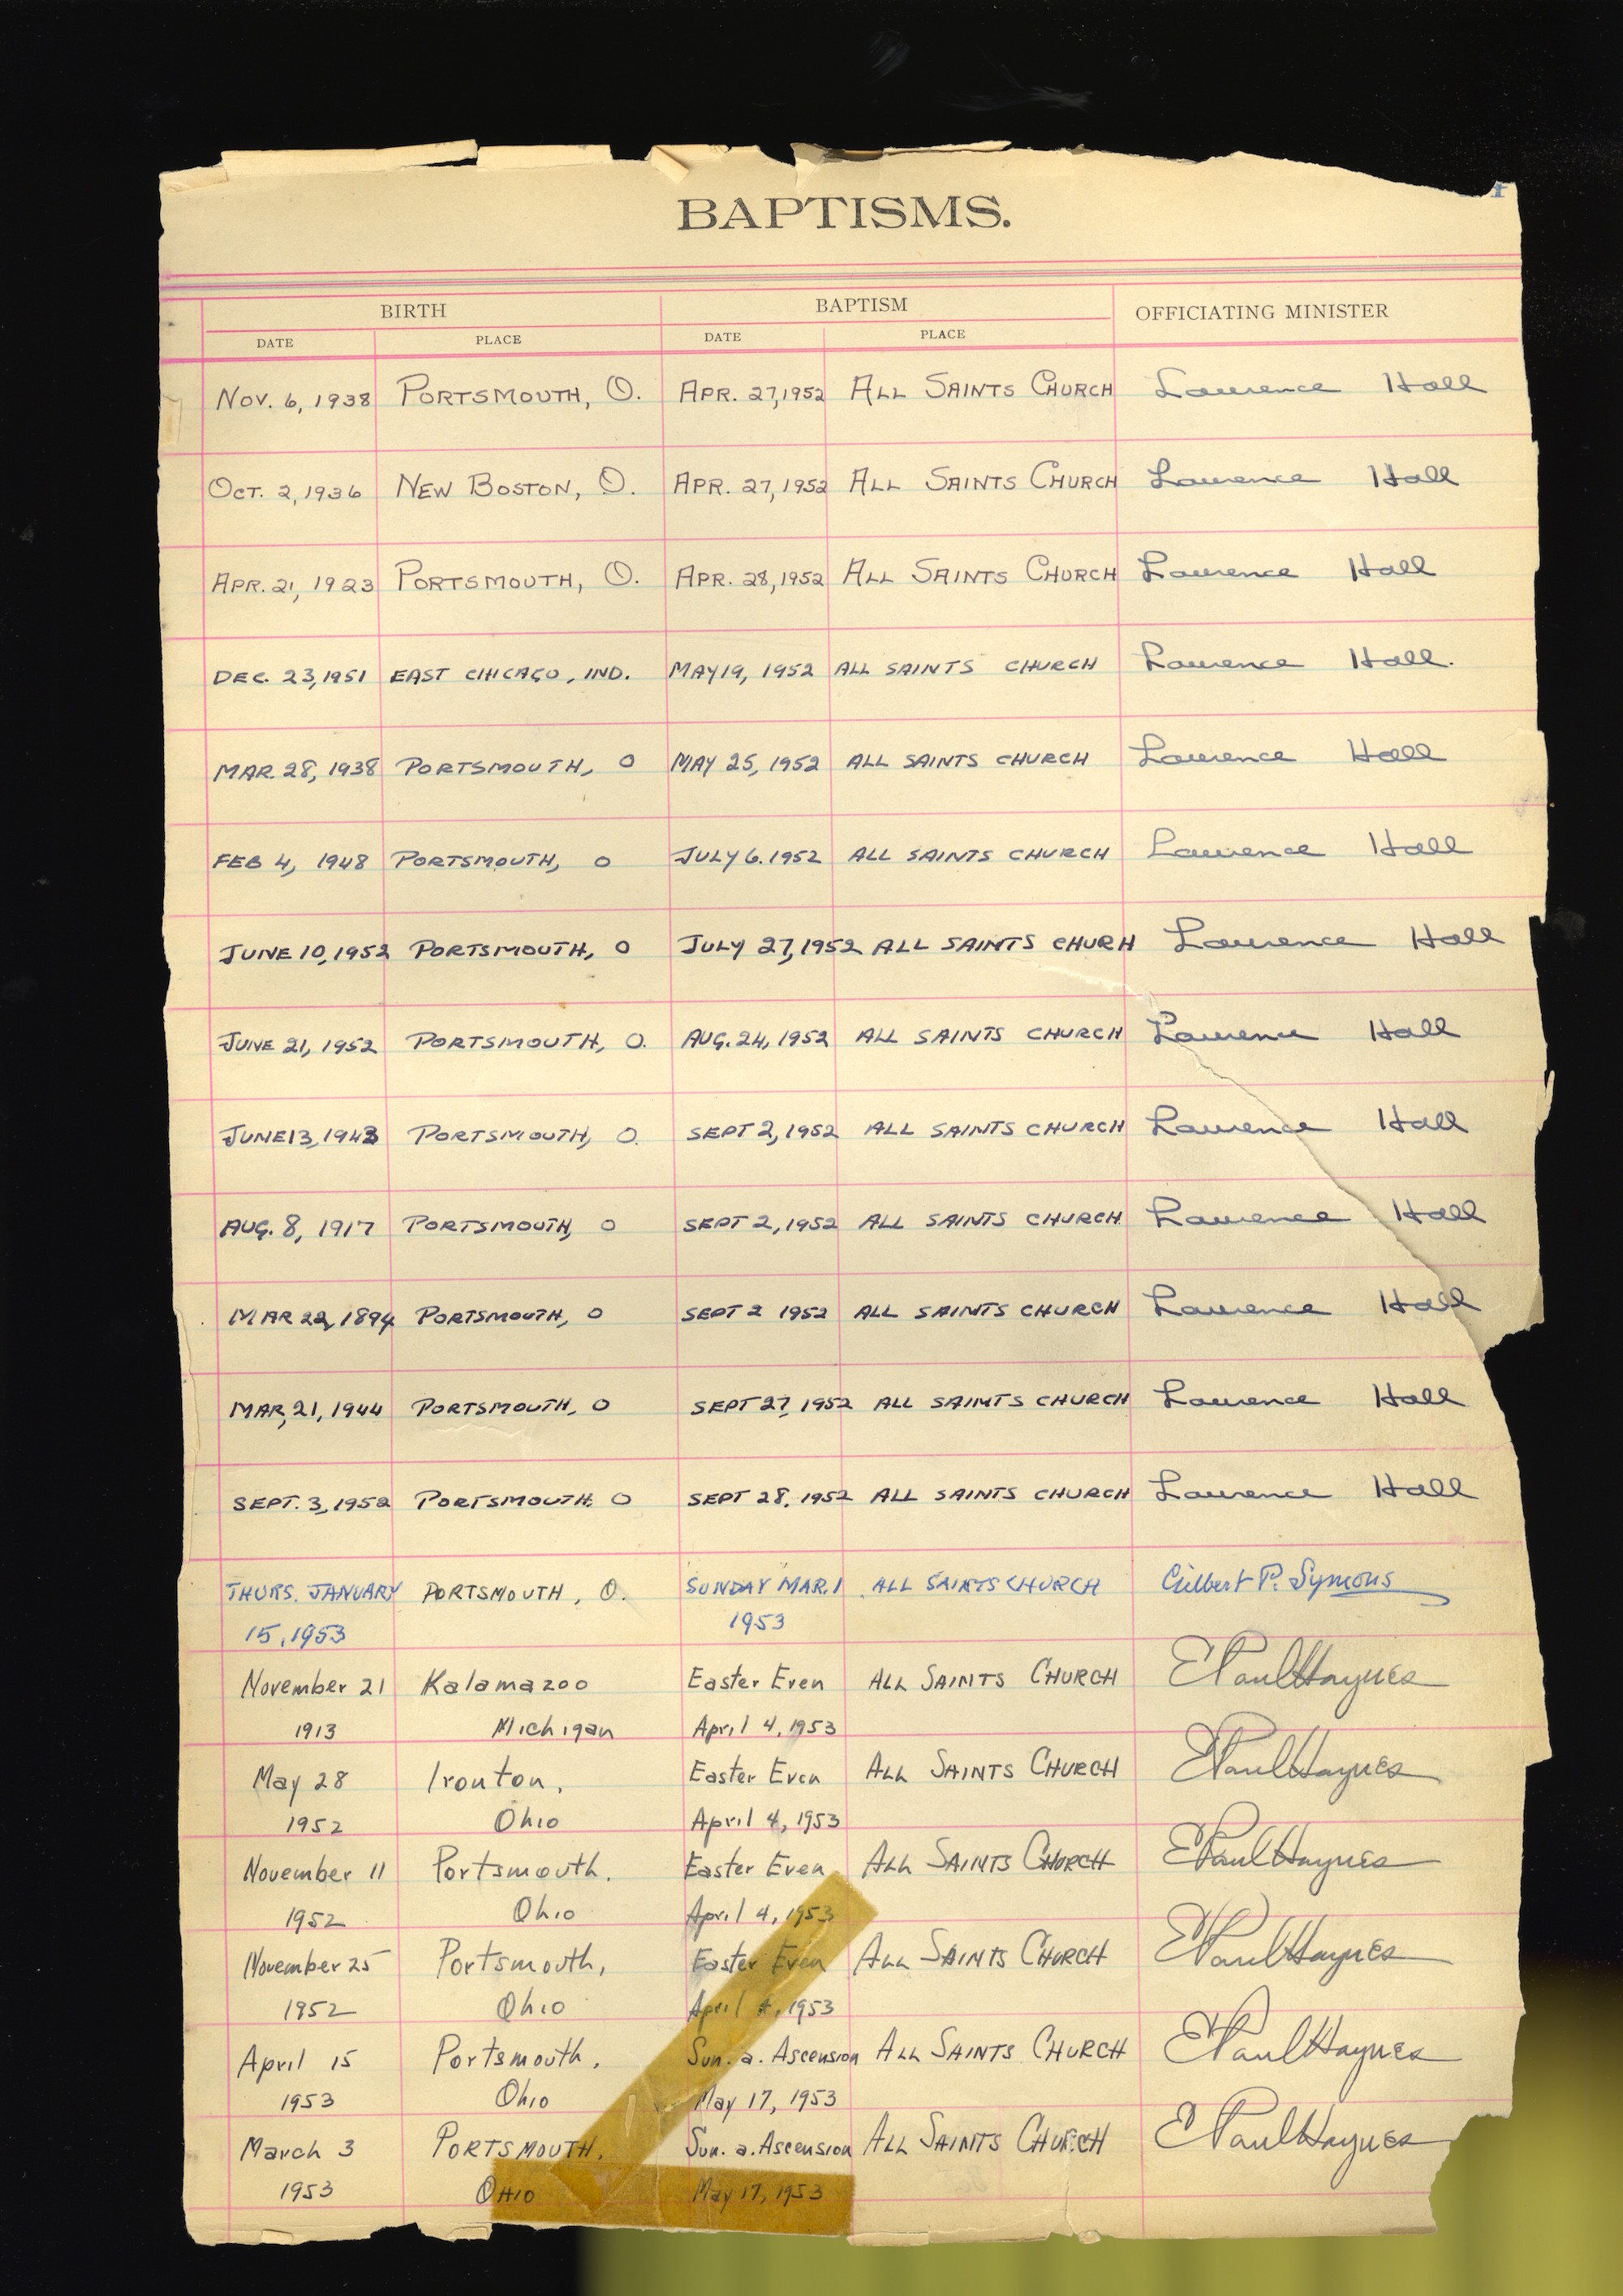 BAPTISMS.
BIRTH BAPTISM OFFICIATING MINISTER
DATE PLACE DATE PLACE
NOV. 6, 1938 PORTSMOUTH, O. APR. 27, 1952 ALL SAINTS CHURCH Laurence Hall
OCT. 2, 1936 NEW BOSTON, O. APR. 27, 1952 ALL SAINTS CHURCH Laurence Hall
APR. 21, 1923 PORTSMOUTH, O. APR. 28, 1952 ALL SAINTS CHURCH Laurence Hall
DEC. 23, 1951 EAST CHICAGO, IND. MAY 19, 1952 ALL SAINTS CHURCH Laurence Hall.
MAR. 28, 1938 PORTSMOUTH, O MAY 25, 1952 ALL SAINTS CHURCH Laurence Hall
FEB 4, 1948 PORTSMOUTH, O JULY 6. 1952 ALL SAINTS CHURCH Laurence Hall
JUNE 10, 1952 PORTSMOUTH, O JULY 27, 1952 ALL SAINTS CHURH Laurence Hall
JUNE 21, 1952 PORTSMOUTH, O. AUG. 24, 1952 ALL SAINTS CHURCH Laurence Hall
JUNE 13, 1943 PORTSMOUTH, O. SEPT 2, 1952 ALL SAINTS CHURCH Laurence Hall
AUG. 8, 1917 PORTSMOUTH, O SEPT 2, 1952 ALL SAINTS CHURCH Laurence Hall
MAR 22, 1894 PORTSMOUTH, O SEPT 2 1952 ALL SAINTS CHURCH Laurence Hall
MAR, 21, 1944 PORTSMOUTH, O SEPT 27, 1952 ALL SAINTS CHURCH Laurence Hall
SEPT. 3, 1952 PORTSMOUTH, O SEPT 28, 1952 ALL SAINTS CHURCH Laurence Hall
THURS. JANUARY PORTSMOUTH, O. SUNDAY MAR. 1 ALL SAINTS CHURCH Gilbert P. Symons
15, 1953 1953
November 21 Kalamazoo Easter Even ALL SAINTS CHURCH E Paul Haynes
1913 Michigan April 4, 1953
May 28 Ironton, Easter Even ALL SAINTS CHURCH E Paul Haynes
1952 Ohio April 4, 1953
November 11 Portsmouth. Easter Even ALL SAINTS CHURCH E Paul Haynes
1952 Ohio April 4, 1953
November 25 Portsmouth, Easter Even ALL SAINTS CHURCH E Paul Haynes
1952 Ohio April 4, 1953
April 15 Portsmouth, Sun. a. Ascension ALL SAINTS CHURCH E Paul Haynes
1953 Ohio May 17, 1953
March 3 PORTSMOUTH, Sun. a. Ascension ALL SAINTS CHURCH E Paul Haynes
1953 OHIO May 17, 1953